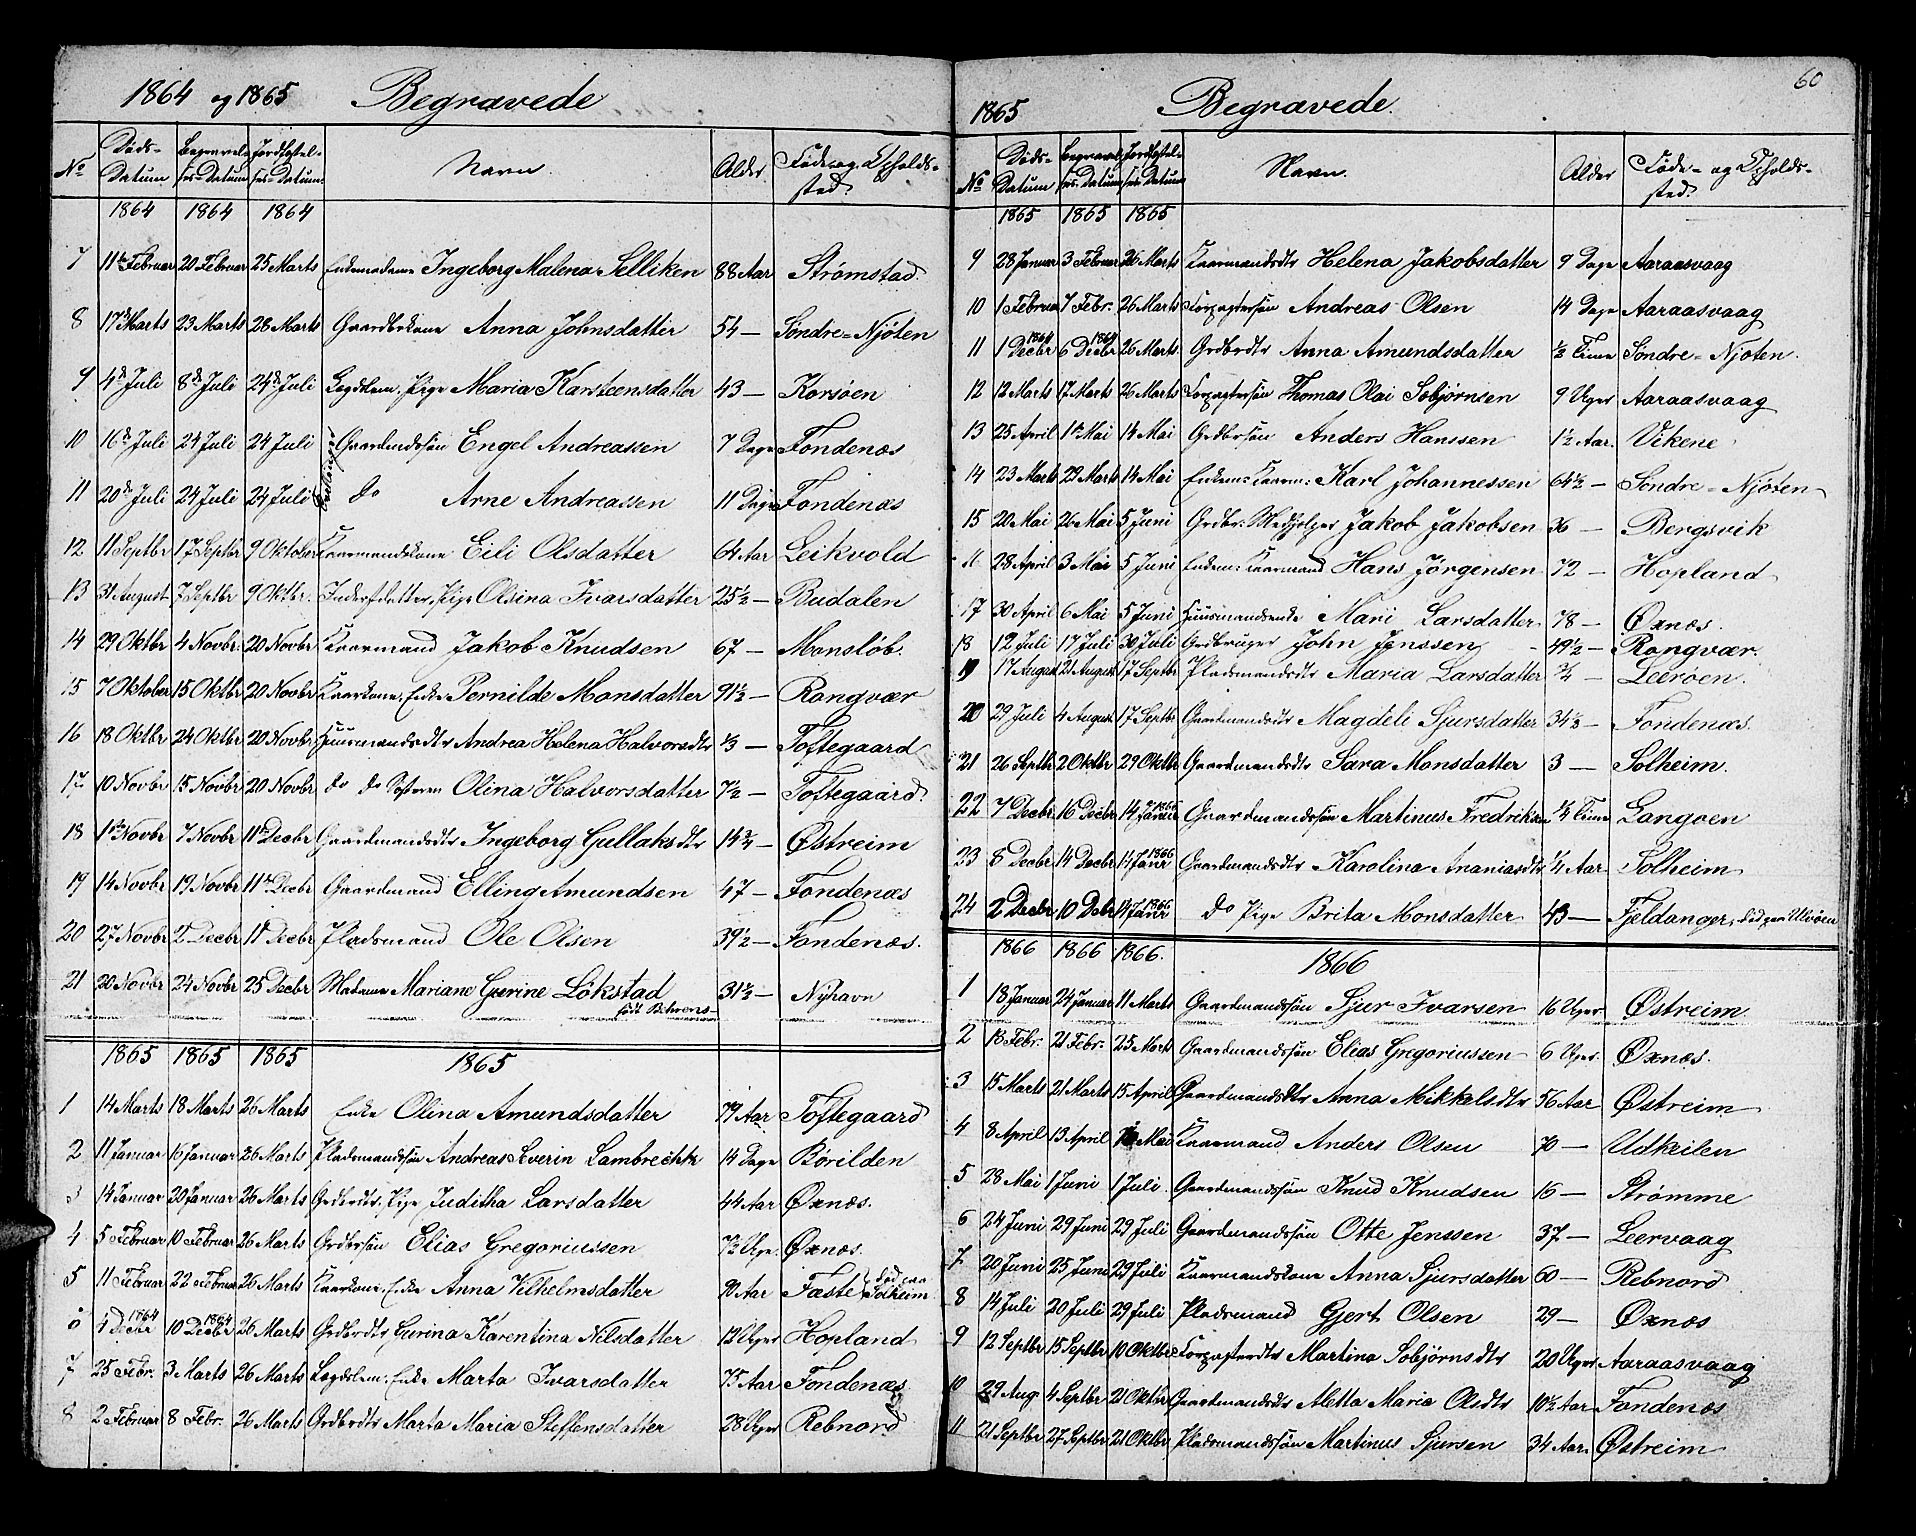 1864 og 1865 Begravede
No Døds-Datum Begravelses-Datum Jordfæstelses-Datum Navn. Alder. Føde- og Opholds-sted.
1864 1864 1864
7 11te Februar 20 Februar 25 Marts Enkemadame Ingeborg Malena Selliken 88 Aar Strømstad.
8 17 Marts 23 Marts 28 Marts Gaardbrkone Anna Johnsdatter 54 — Søndre-Njöten
9 4de Juli 8de Juli 24de Juli Lægdslem, Pige Maria Karsteensdatter 43 — Korsöen
10 16de Juli 24 Juli 24 Juli Tvillinger Gaardmdssön Engel Andreassen 7 Dage Fondenæs
11 20de Juli 24 Juli 24 Juli do Arne Andreassen 11 Dage Fondenæs
12 11 Septbr 17 Septbr 9 Oktober Kaarmandskone Eili Olsdatter 64 Aar Leikvold
13 31 August 7 Septbr 9 Oktbr. Inderstdatter, Pige Olsina Ivarsdatter 25½ — Budalen
14 29 Oktbr 4 Novbr. 20 Novbr Kaarmand Jakob Knudsen 67 — Monslöb.
15 7 Oktober 15 Oktbr 20 Novbr Kaarkone, Enke Pernilde Monsdatter 91½ — Rongvær
16 18 Oktbr 24 Oktbr 20 Novbr Huusmandsdtr Andrea Helena Halvorsdtr ⅓ — Toftegaard
17 10 Novbr 15 Novbr 20 Novbr do do Søsteren Olina Halvorsdatter 7½ — Toftegaard.
18 1ste Novbr 7 Novbr 11te Decbr Gaardmandsdtr Ingeborg Gullaksdtr 14¾ — Östreim
19 14 Novbr 19 Novbr 11te Decbr Gaardmand Elling Amundsen 47 — Fondenæs
20 27 Novbr 2 Decbr 11 Decbr Pladsmand Ole Olsen 39½ — Fondenæs.
21 20 Novbr 24 Novbr 25 Decbr Madame Mariane Gjerine Lökstad 31½ — Nyhavn
födt Behrens
1865 1865 1865 1865
1 14 Marts 18 Marts 26 Marts Enke Olina Amundsdatter 79 Aar Toftegaard
2 11 Januar 16 Januar 26 Marts Pladsmandssön Andreas Severin Lambrechts 14 Dage Börilden
3 14 Januar 20 Januar 26 Marts Grdbrdtr, Pige Juditha Larsdatter 44 Aar Öxnæs.
4 5 Februar 10 Februar 26 Marts Grdbrsön Elias Gregoriussen 7½ Uge. Öxnæs.
5 11 Februar 22 Februar 26 Marts Kaarkone, Enke Anna Vilhelmsdatter 90 Aar Fæste död paa Solheim
6 4 Decbr 1864 10 Decbr 1864 26 Marts Grdbrdtr Gurina Karentina Nilsdatter 12 Uger Hopland
7 25 Febr. 3 Marts 26 Marts Lægdslem, Enke Marta Ivarsdatter 75 Aar Fondenæs
8 2 Februar 8 Febr. 26 Marts Grdbrdtr Marta Maria Steffensdatter 28 Uger Rebnord
60
1865 Begravede.
No Døds-Datum Begravelses-Datum Jordfæstelses-Datum Navn. Alder Føde- og Opholds-sted.
1865 1865 1865
9 28 Januar 3 Februar 26 Marts Kaarmandsdtr Helena Jakobsdatter 9 Dage Aaraasvaag
10 1 Februar 7 Febr. 26 Marts Forpagtersön Andreas Olsen 14 Dage Aaraasvaag
11 1 Decbr 1864 6 Decbr 1864 26 Marts Grdbrdtr Anna Amundsdatter ½ Time Söndre-Njöten.
12 12 Marts 17 Marts 26 Marts Forpagtersön Thomas Olai Sobjörnsen 9 Uger Aaraasvaag
13 25 April 1te Mai 14 Mai Grdbrsön Anders Hanssen 1½ Aar. Vikene
14 23 Marts 29 Marts 14 Mai Enkem: Kaarm: Karl Johannessen 64½ — Söndre-Njöten
15 20 Mai 26 Mai 5 Juni Grdbr. Medhjelper Jakob Jakobsen 36 — Bergsvik
28 April 3 Mai 5 Juni Enkem: Kaarmand Hans Jörgensen 72 — Hopland
17 30 April 6 Mai 5 Juni Huusmandsenke Mari Larsdatter 78 — Öxnæs.
18 12 Juli 17 Juli 30 Juli Grdbruger John Jenssen 49½ — Rongvær.
19 17 August 21 August 17 Septbr Pladsmandsdtr Maria Larsdatter ¾ — Leeröen.
20 29 Juli 4 August 17 Septbr Gaardmandsdtr Magdeli Sjursdatter 34½ — Fondenæs.
21 26 Septbr 2 Oktbr 29 Oktbr Gaardmandsdtr Sara Monsdatter 3 — Solheim.
22 7 Decbr 16 Decbr 14 Januar 1866 Gaardmandssön Martinus Fredriksen ¼ Time Langöen
23 8 Decbr 14 Decbr 14 Janr 1866 Gaardmandsdtr Karolina Ananiasdtr ¼ Aar Solheim
24 2 Decbr 10 Decbr 14 Janr 1866 do Pige Brita Monsdatter 43 — Fjeldanger, död paa Ulvöen
1866 1866 1866. 1866
1 18 Januar 24 Januar 11 Marts Gaardmandssön Sjur Ivarsen 16 Uger Östreim.
2 13 Febr. 21 Febr. 25 Marts Gaardmandssön Elias Gregoriussen 6 Uger. Öxnæs.
3 15 Marts 21 Marts 15 April Gaardmandsdtr Anna Mikkelsdtr 56 Aar Östreim
4 8 April 13 April Mai Kaarmand Anders Olsen 70 — Udkeilen
5 28 Mai 1 Juni 1 Juli. Gaardmandssön Knud Knudsen 16 — Strömme
6 24 Juni 29 Juni 29 Juli Gaardmandssön Otte Jenssen 37 — Leervaag
7 20 Juni 25 Juni 29 Juli Kaarmandskone Anna Sjursdatter 60 — Rebnord
8 14 Juli 20 Juli 29 Juli Pladsmand Gjert Olsen 29 — Öxnæs
9 12 Septbr 15 Septbr 10 Oktbr Forpagterdtr Martina Sobjörnsdtr 20 Uger Aaraasvaag
10 29 Aug 4 Septbr 21 Oktbr Gaardmandsdtr Aletta Maria Olsdtr 10½ Aar Fondenæs
11 21 Septbr 27 Septbr 21 Oktbr Pladsmandssön Martinus Sjursen 34 Aar. Östreim